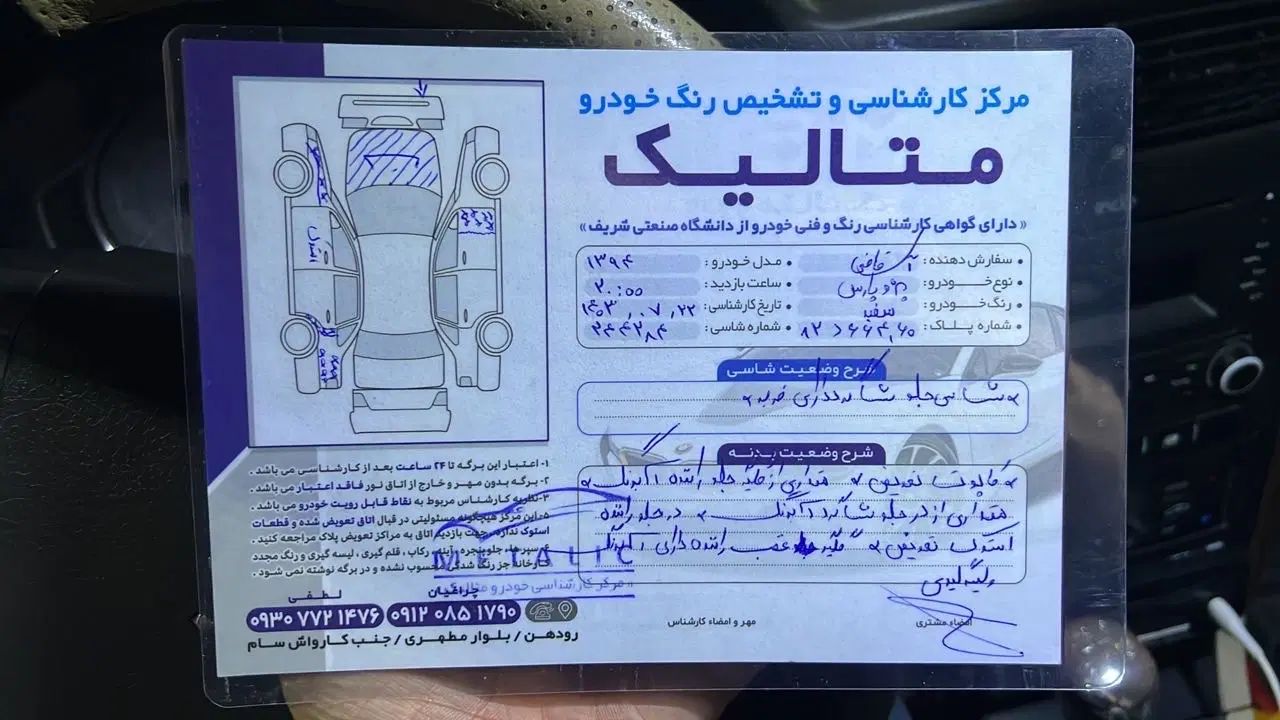 مرکز کارشناسی و تشخیص رنگ خودرو
متالیک
« دارای گواهی کارشناسی رنگ و فنی خودرو از دانشگاه صنعتی شریف »
سفارش دهنده : آ قاضی
مدل خودرو : ۱۳۹۴
نوع خودرو : پژو پارس
ساعت بازدید : ۲۰:۰۰
رنگ خودرو : سفید
تاریخ کارشناسی : ۱۴۰۳,۰۷,۲۲
شماره پلاک :
شماره شاسی : ۳۴۴۲۸۴
شرح وضعیت شاسی
شاسی جلو شاگرد دارای ضربه
شرح وضعیت بدنه
کاپوت تعویض مقداری از گلگیر جلو راننده آبرنگ
مقداری از در جلو شاگرد آبرنگ در جلو راننده
استوک تعویض گلگیر عقب راننده دارای آبرنگ
و لیسه گیری
امضاء مشتری
مهر و امضاء کارشناس
استوک
۱- اعتبار این برگه تا ۲۴ ساعت بعد از کارشناسی می باشد .
۲- برگه بدون مهر و خارج از اتاق نور فاقد اعتبار می باشد .
۳- نظریه کارشناس مربوط به نقاط قابل رویت خودرو می باشد .
۵- این مرکز هیچگونه مسئولیتی در قبال اتاق تعویض شده و قطعات
استوک ندارد. جهت بازدید اتاق به مراکز تعویض پلاک مراجعه کنید .
۶- سپرها، جلوپنجره، آینه، رکاب، قلم گیری ، لیسه گیری و رنگ مجدد
کارخانه جز رنگ شدگی محسوب نشده و در برگه نوشته نمی شود .
METALIC
مرکز کارشناسی خودرو متالیک
چراغیان
لطفی
۰۹۱۲ ۰۸۵ ۱۷۹۰
۰۹۳۰ ۷۷۲ ۱۴۷۶
رودهن / بلوار مطهری / جنب کارواش سام